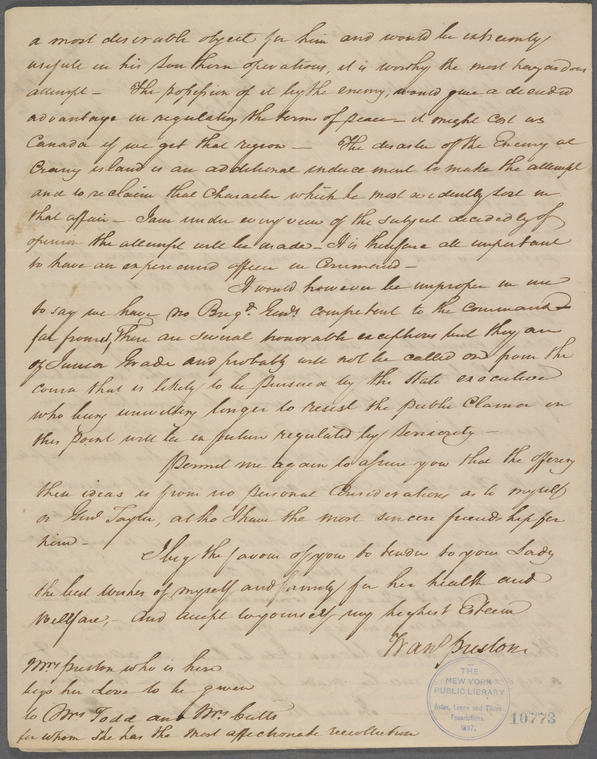 a most desirable object for him and would be extremely
usefule in his Southern operations, it is worthy the most hazardous
attempt – The possession of it by the enemy, would give a decided
advantage in regulating the terms of peace – it might cost us
Canada if we get that region – The disaster of the Enemy at
Crany island is an additional inducement to make the attempt
and to reclaim that Character which he most evidently lost in
that affair – I am under every view of the subject decidedly of
opinion the attempt will be made – It is therefore all important
to have an experienced officer in Command –
It would however be improper in me
to say we have no Brigd. Genls competent to the command
far from it, There are several honorable exceptions but they are
of Junior Grade and probably will not be called on from the
course that is likely to be pursued by the State executive
who being unwilling longer to resist the Public Clamor on
this point will be in future regulated by Seniority –
Permit me again to assure you that the offering
these ideas is from no personal Considerations as to myself
or Genl Taylor, altho I have the most sincere friendship for
him –
I beg the favour of you to tender to your Lady
the best wishes of myself and family for her health and
Wellfare, – And accept to yourself my highest Esteem
Frans Preston
Mrs Preston who is here
begs her Love to be given
to Mrs Todd and Mrs Cutts
for whom she has the most affectionate recollection
THE
NEW YORK
PUBLIC LIBRARY
Astor, Lenox and Tilden
Foundations.
1897.
10773